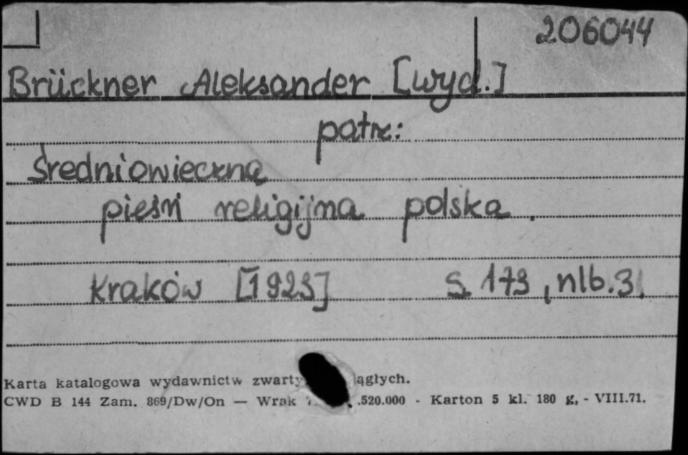 206044
Brückner Aleksander [wyd.]
patrz:
Średniowieczna
pieśń religijna polska.
Kraków [1923] S. 173, nlb. 3.
Karta katalogowa wydawnictw
CWD B 144 Zam. 869/Dw/On — .520.000 - Karton 5 kl. 180 g, - VIII.71.